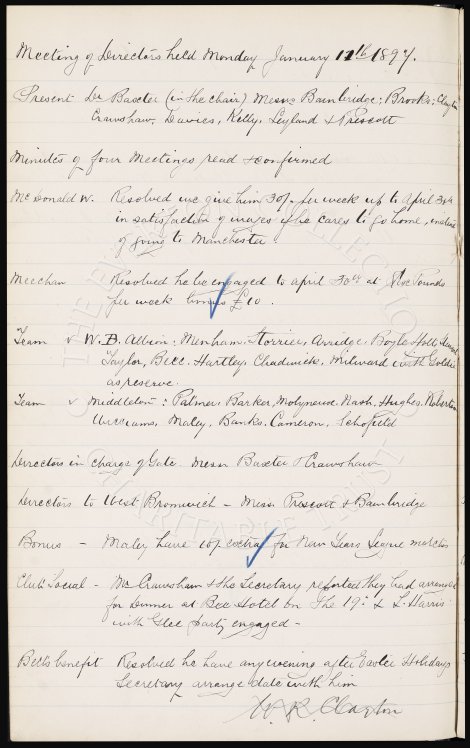 Meeting of Directors held Monday January 11th 1897.
Present Dr Baxter (in the chair) Messrs Bainbridge; Brooks; Clayton
Crawshaw, Davies, Kelly, Leyland & Prescott
Minutes of four Meetings read & confirmed
McDonald W. Resolved we give him 30/- per week up to April 30th
in satisfaction of wages if he cares to go home, instead
of going to Manchester
Meechan Resolved he be engaged to April 30th at five Pounds
per week bonus £10.
Team v W. B. Albion; Menham. Storrier, Arridge, Boyle Holt, Stewart
Taylor, Bell. Hartley. Chadwick. Milward with Goldie
as reserve.
Team v Middleton: Palmer. Barker. Molyneux. Nash. Hughes. Robertson
Williams, Maley, Banks. Cameron, Schofield
Directors in charge of Gate. Messrs Baxter & Crawshaw
Directors to West Bromwich - Messrs Prescott & Bainbridge
Bonus - Maley have 10/- extra for New Years League matches
Club Social - Mr Crawshaw & the Secretary reported they had arranged
for Dinner at Bee Hotel on The 19: & L. Harris
with Glee party engaged -
Bell's benefit Resolved he have any evening after Easter Holidays
Secretary arrange date with him
W. R. Clayton
CHARITABLE TRUST